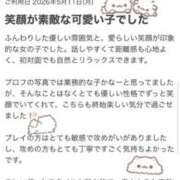 ご利用日 2026年5月11日(月)
笑顔が素敵な可愛い子でした
ふんわりした優しい雰囲気と、愛らしい笑顔が印象
的な女の子でした。話しやすくて距離感も心地よ
く、初対面でも自然とリラックスできます。
プロフの写真では業務的な子かなーと思ってました
が、そんなことはなくとても優しい性格でずっと笑
顔でいてくれて、こちらも終始楽しい気分で過ごせ
ました
プレイの方はとても敏感で攻めがいがありました
し、攻めの方もとても丁寧ですごく気持ちよかった
です。